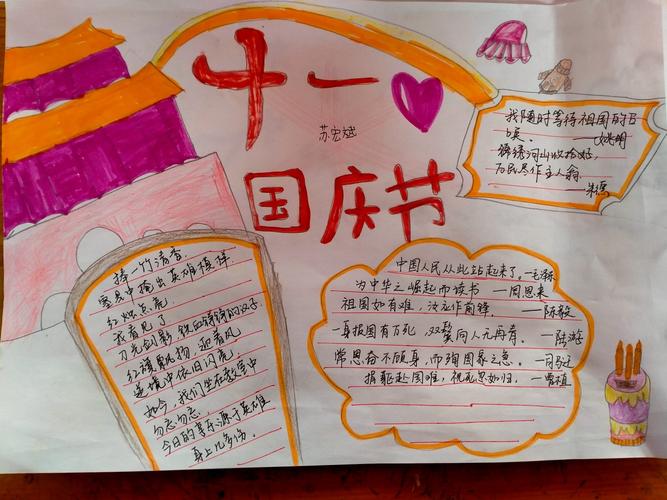 十一
苏宏斌
国庆节
我随时等待祖国的召
唤. ——姚明
锦绣河山收拾好,
万民尽作主人翁.
——朱德
捧一竹清香.
红烛点亮
我看见了
刀光剑影 铁血铮铮的汉子
红旗飘扬,迎着风
逆境中依旧闪亮
如今,我们坐在教室中
勿忘勿忘.
今日的幸乐源于英雄
身上几多伤.
中国人民从此站起来了.—毛泽东
为中华之崛起而读书 —周恩来
祖国如有难,汝应作前锋. —陈毅
一身报国有万死,双鬓向人无再青. —陆游
常思奋不顾身,而殉国家之急. —司马迁
捐躯赴国难,视死忽如归. —曹植